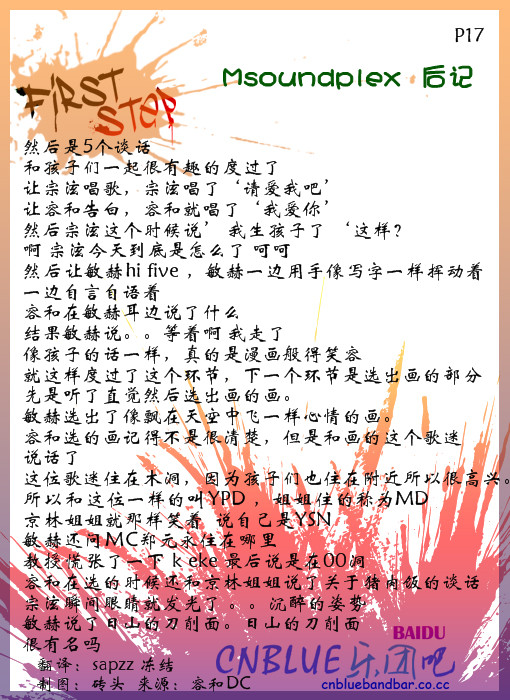 P17
FIRST STEP
Msoundplex 后记
然后是5个谈话
和孩子们一起很有趣的度过了
让宗泫唱歌，宗泫唱了‘请爱我吧’
让容和告白，容和就唱了‘我爱你’
然后宗泫这个时候说’我生孩子了 ‘这样?
啊 宗泫今天到底是怎么了 呵呵
然后让敏赫hi five ，敏赫一边用手像写字一样挥动着
一边自言自语着
容和在敏赫耳边说了什么
结果敏赫说。。等着啊 我走了
像孩子的话一样，真的是漫画般得笑容
就这样度过了这个环节，下一个环节是选出画的部分
先是听了直觉然后选出画的画。
敏赫选出了像飘在天空中飞一样心情的画。
容和选的画记得不是很清楚，但是和画的这个歌迷
说话了
这位歌迷住在木洞，因为孩子们也住在附近所以很高兴。
所以和这位一样的叫YPD ，姐姐住的称为MD
京林姐姐就那样笑着 说自己是YSN
敏赫还问MC郑元永住在哪里
教授慌张了一下 k eke 最后说是在00洞
容和在选的时候还和京林姐姐说了关于猪肉饭的谈话
宗泫瞬间眼睛就发光了。。沉醉的姿势
敏赫说了日山的刀削面。日山的刀削面
很有名吗
翻译：sapzz 冻结
制图：砖头 来源：容和DC
BAIDU
CNBLUE乐团吧
cnbluebandbar.co.cc